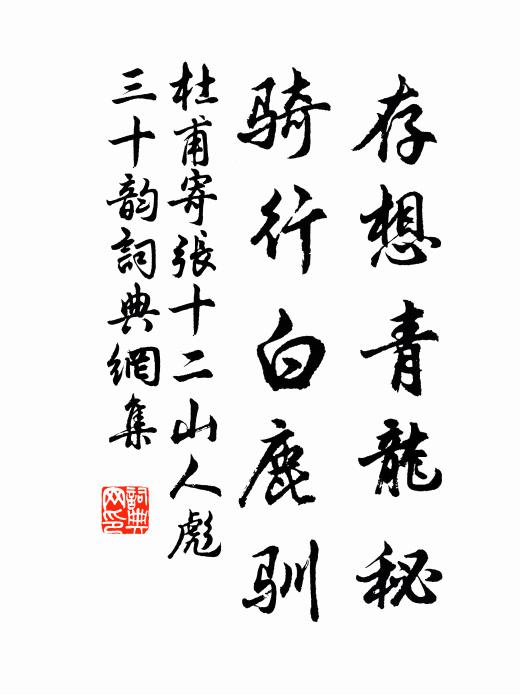 存想青龍秘
骑行白鹿驯
杜甫寄張十二山人彪
三十韵詞典網集
詞典網印